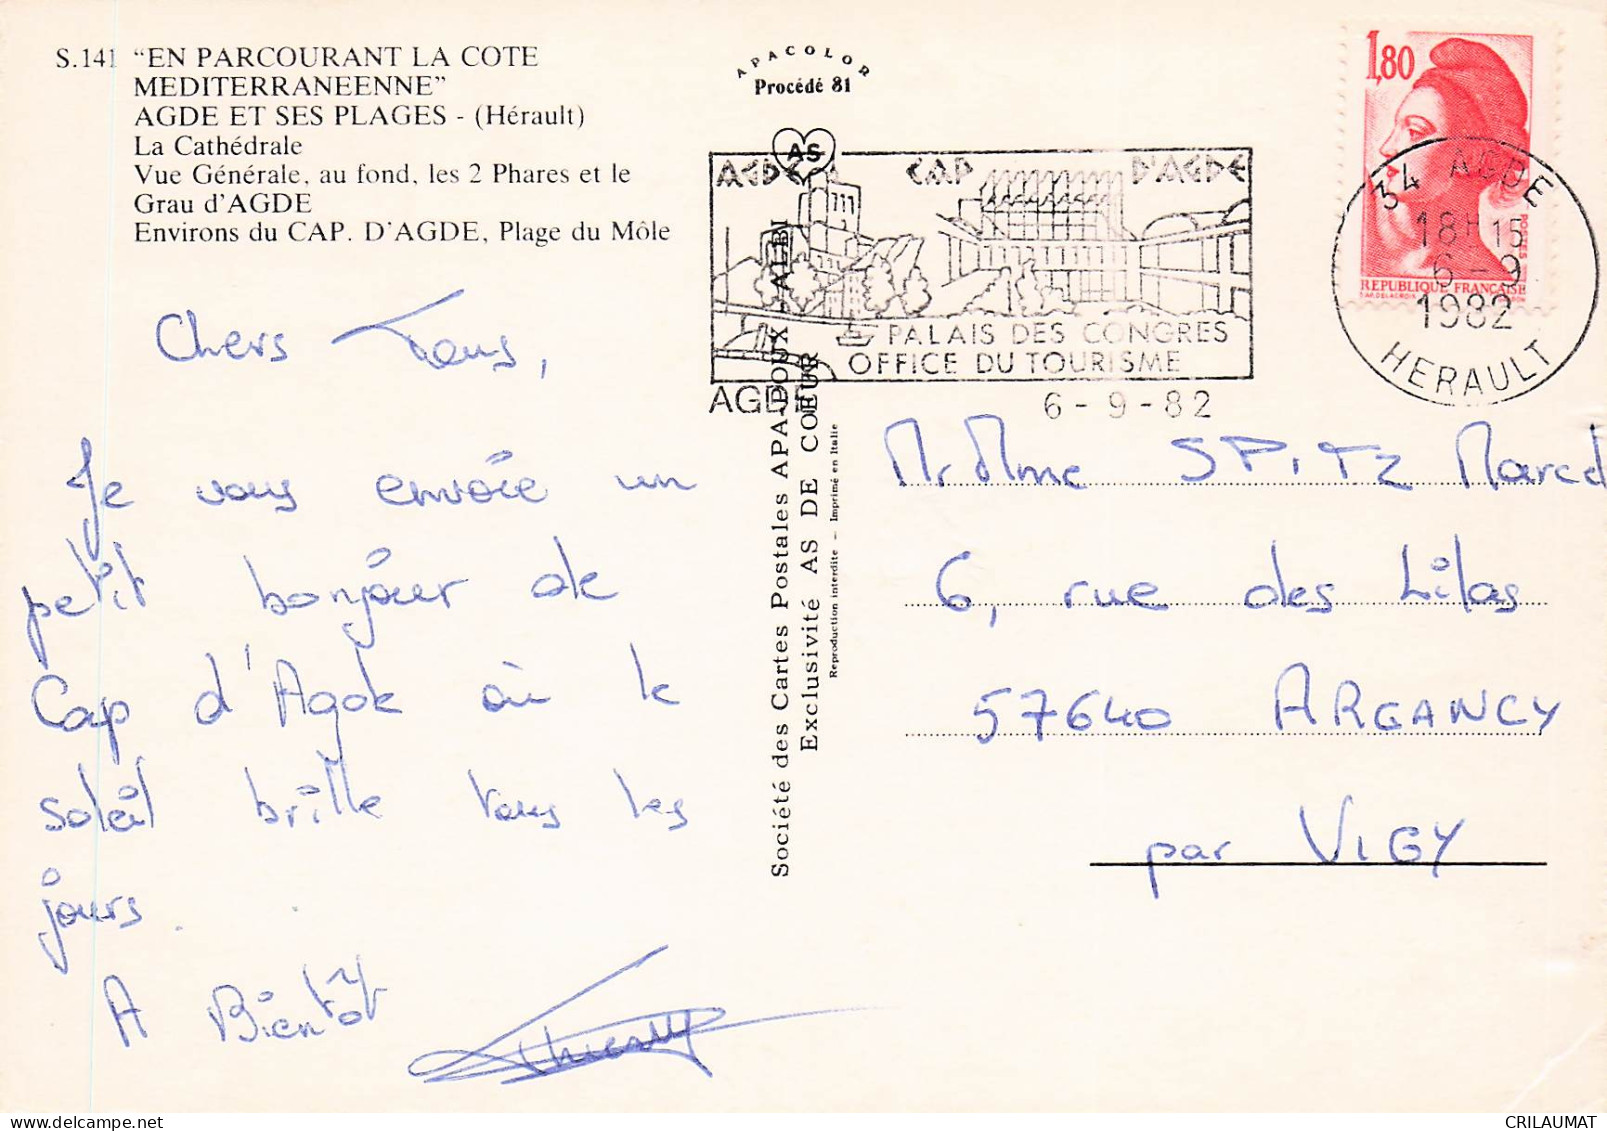 S.141 “EN PARCOURANT LA COTE
MEDITERRANEENNE”
AGDE ET SES PLAGES - (Hérault)
La Cathédrale
Vue Générale, au fond, les 2 Phares et le
Grau d'AGDE
Environs du CAP. D'AGDE, Plage du Môle
Chers Tous,
Je vous envoie un
petit bonjour de
Cap d'Agde où le
soleil brille tous les
jours.
A Bientôt
Thierry
APACOLOR
Procédé 81
AS
AGDE CAP D'AGDE
PALAIS DES CONGRES
OFFICE DU TOURISME
AGDE 6-9-82
Société des Cartes Postales APA-POUX - ALBI
Exclusivité AS DE COEUR
Reproduction interdite - Imprimé en Italie
1,80
POSTES
REPUBLIQUE FRANÇAISE
34 AGDE
18H15
6-9
1982
HERAULT
Mr Mme SPITZ Marcel
6, rue des Lilas
57640 ARGANCY
par VIGY
CRILAUMAT